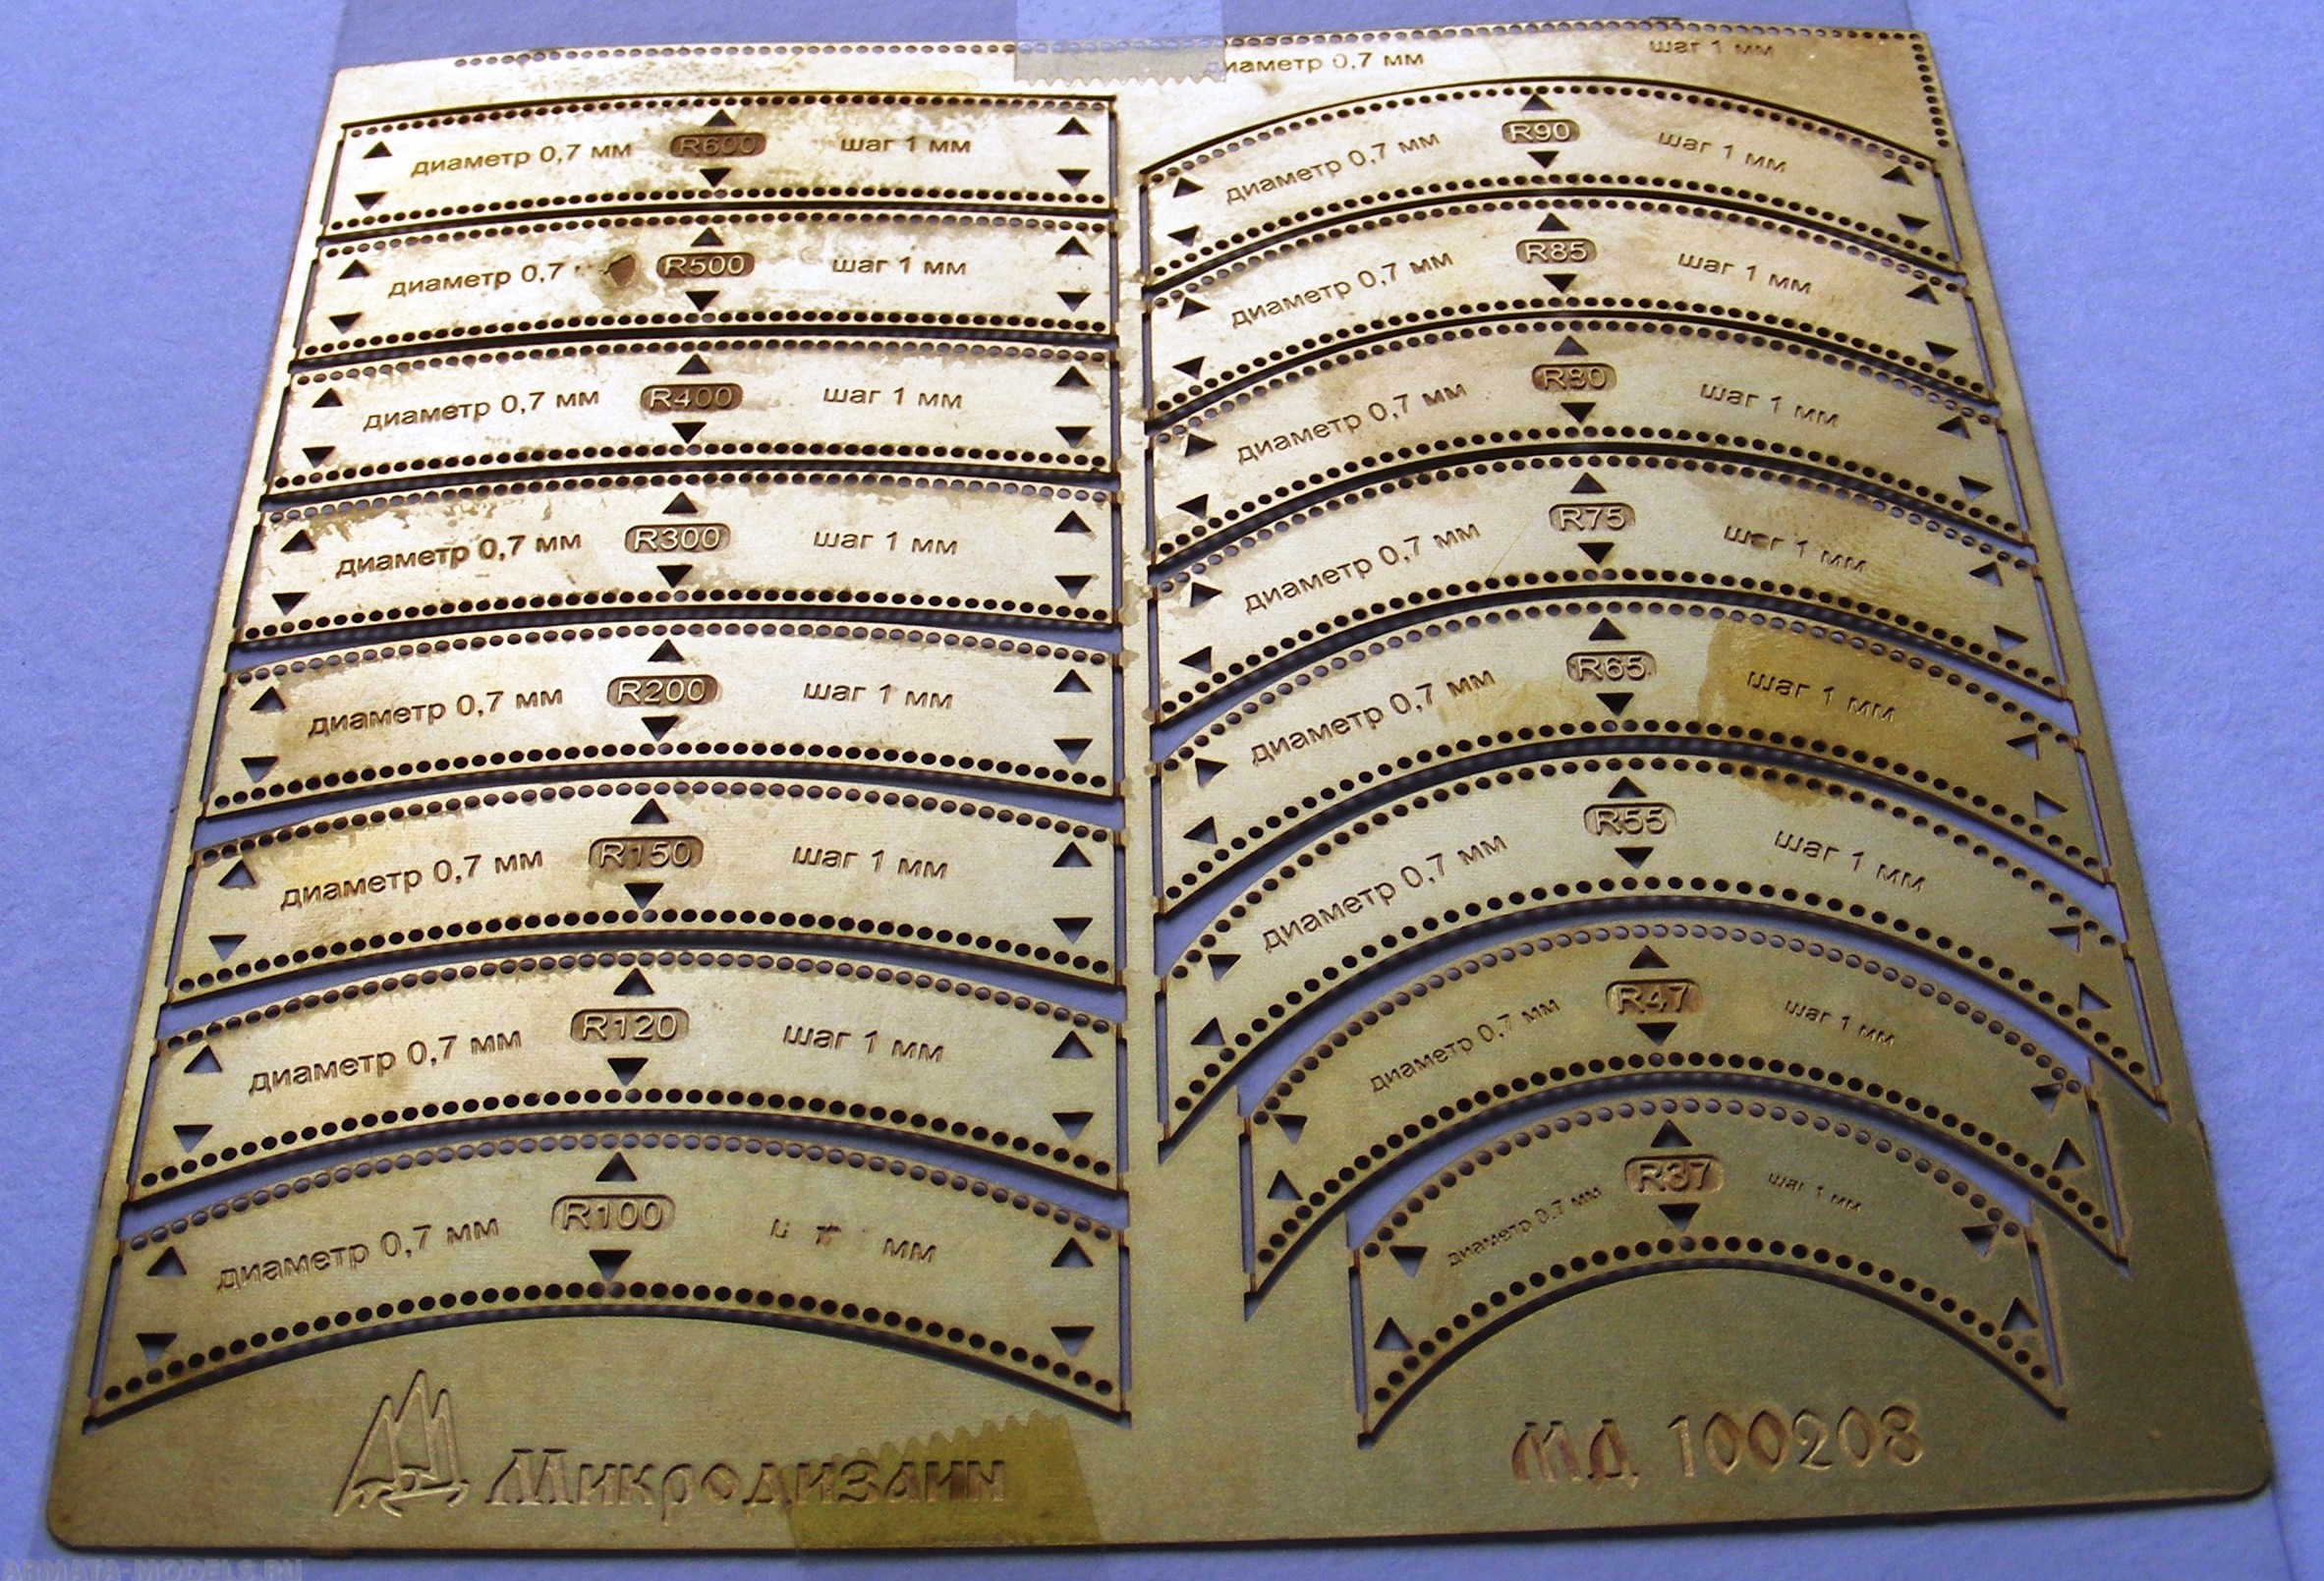 диаметр 0,7 мм шаг 1 мм
диаметр 0,7 мм R600 шаг 1 мм
диаметр 0,7 R500 шаг 1 мм
диаметр 0,7 мм R400 шаг 1 мм
диаметр 0,7 мм R300 шаг 1 мм
диаметр 0,7 мм R200 шаг 1 мм
диаметр 0,7 мм R150 шаг 1 мм
диаметр 0,7 мм R120 шаг 1 мм
диаметр 0,7 мм R100 мм
диаметр 0,7 мм R90 шаг 1 мм
диаметр 0,7 мм R85 шаг 1 мм
диаметр 0,7 мм R80 шаг 1 мм
диаметр 0,7 мм R75 шаг 1 мм
диаметр 0,7 мм R65 шаг 1 мм
диаметр 0,7 мм R55 шаг 1 мм
диаметр 0,7 мм R47 шаг 1 мм
диаметр 0,7 мм R37 шаг 1 мм
Микродизайн
МД 100208
ARMATA-MODELS.RU